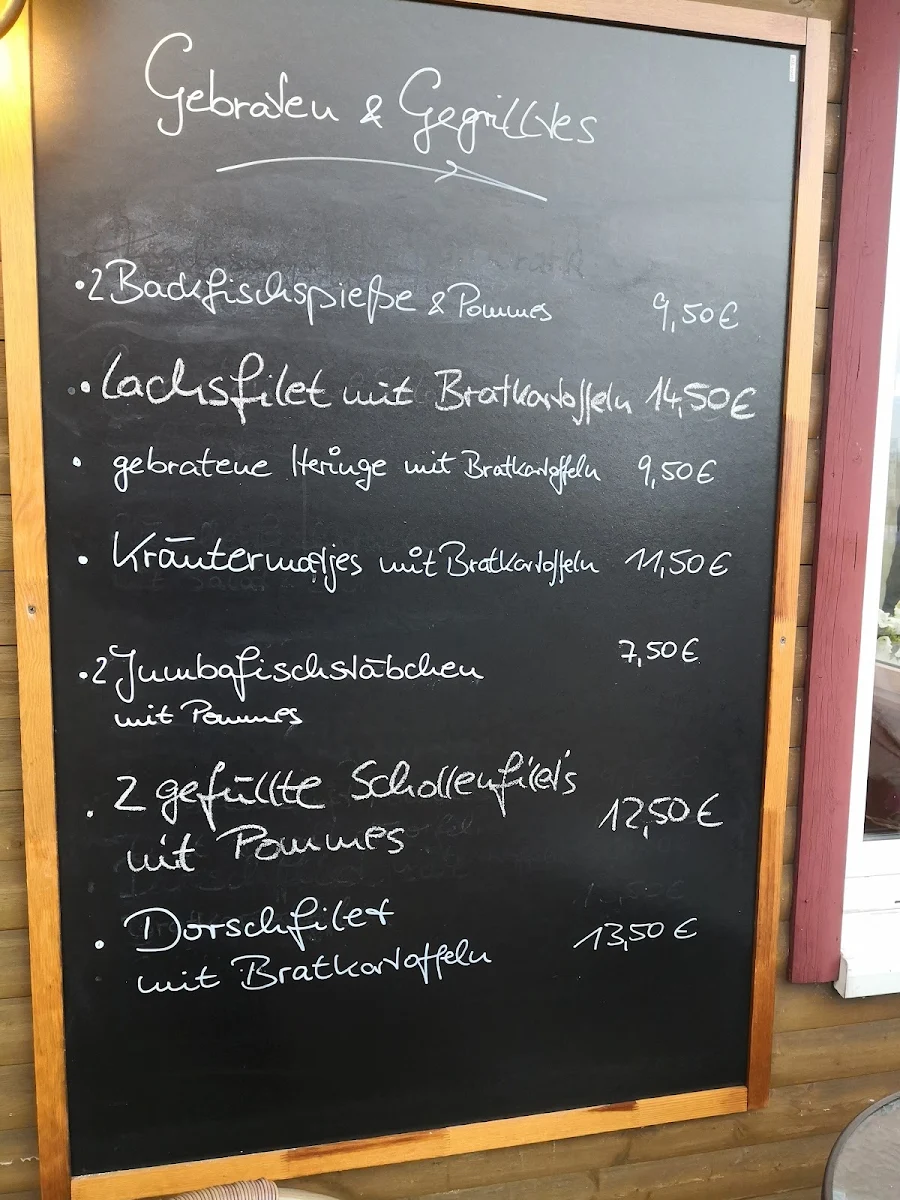 Gebraten & Gegrilltes
• 2 Backfischspieße & Pommes 9,50 €
• Lachsfilet mit Bratkartoffeln 14,50 €
• gebratene Heringe mit Bratkartoffeln 9,50 €
• Kräutermatjes mit Bratkartoffeln 11,50 €
• 2 Jumbofischstäbchen 7,50 €
mit Pommes
• 2 gefüllte Schollenfilets
mit Pommes 12,50 €
• Dorschfilet 13,50 €
mit Bratkartoffeln